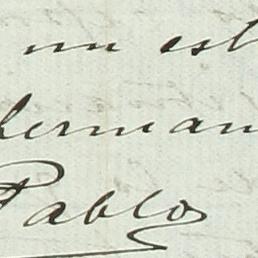 un est
herman
Pablo